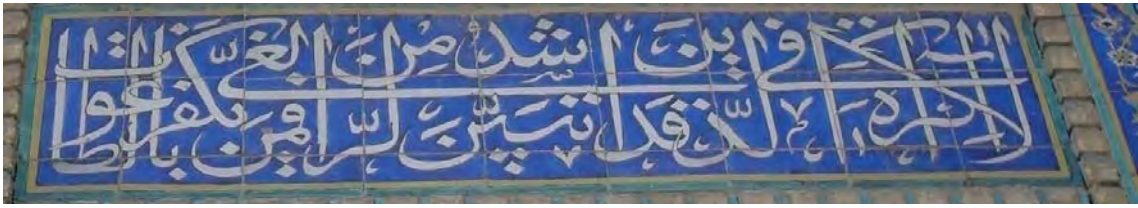 لا اكراه في الدين قد تبين الرشد من الغي فمن يكفر بالطاغوت